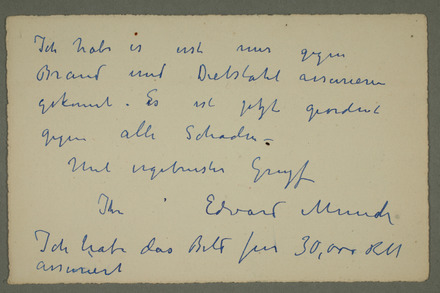 Ich habe es erst nur gegen
Brand und Diebstahl assurieren
gekonnt. Es ist jetzt geordnet
gegen alle Schaden –
Mit ergebenster Gruss
Ihr Edvard Munch
Ich habe das Bild für 30,000 RM
assuriert